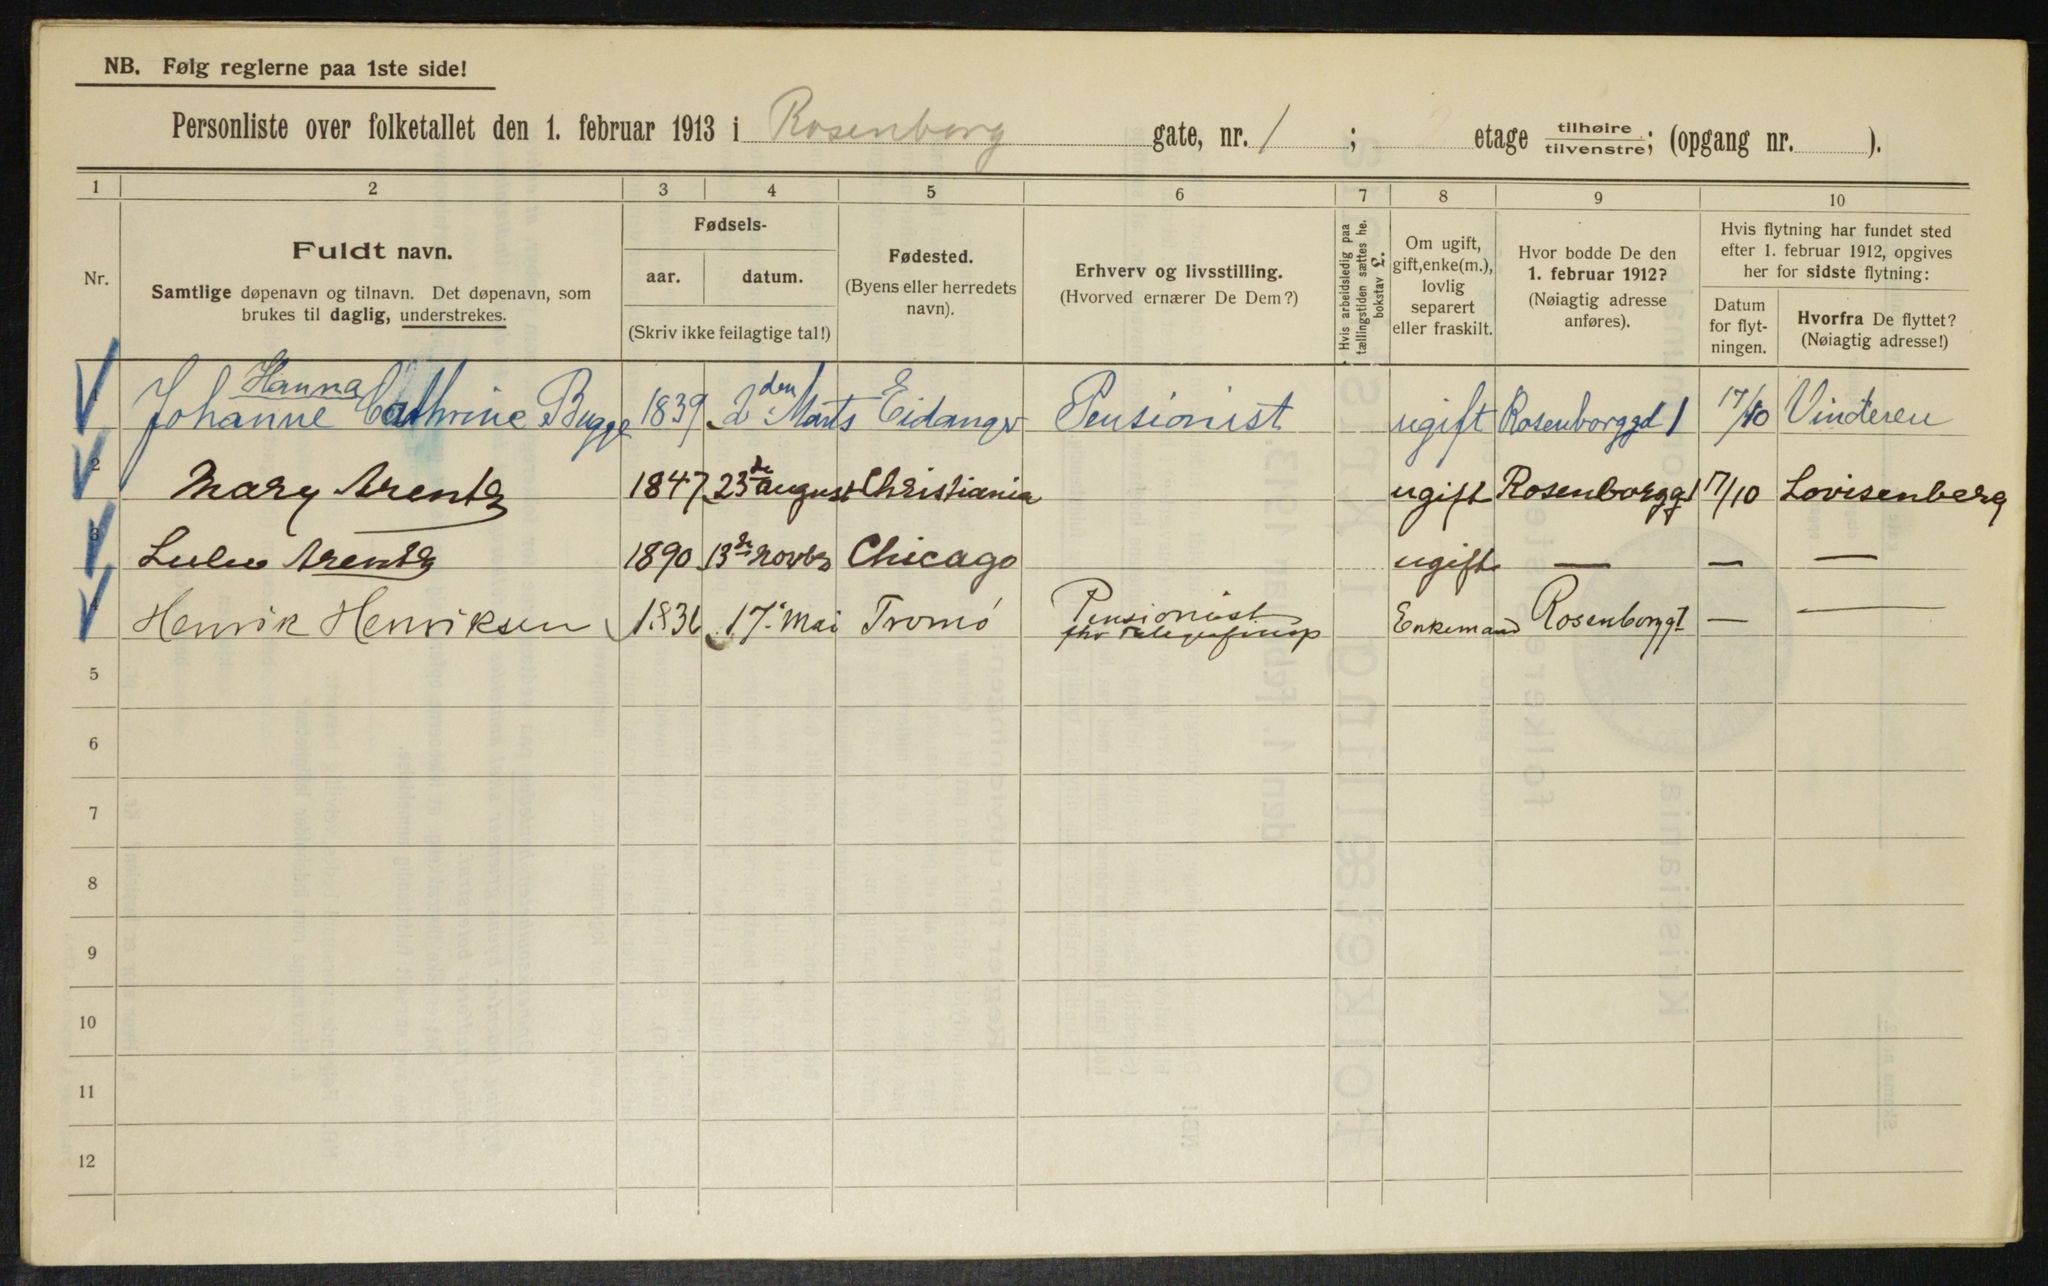 NB. Følg reglerne paa 1ste side!
Personliste over folketallet den 1. februar 1913 i Rosenborg gate, nr. 1 ; etage tilhøire / tilvenstre; (opgang nr. ).
1 2 3 4 5 6 7 8 9 10
Nr.
Fuldt navn.
Samtlige døpenavn og tilnavn. Det døpenavn, som
brukes til daglig, understrekes.
Fødsels-
aar. datum.
(Skriv ikke feilagtige tal!)
Fødested.
(Byens eller herredets
navn).
Erhverv og livsstilling.
(Hvorved ernærer De Dem?)
Hvis arbeidsledig paa
tællingstiden sættes he.
bokstav L.
Om ugift,
gift, enke(m.),
lovlig
separert
eller fraskilt.
Hvor bodde De den
1. februar 1912?
(Nøiagtig adresse
anføres).
Hvis flytning har fundet sted
efter 1. februar 1912, opgives
her for sidste flytning:
Datum
for flyt-
ningen.
Hvorfra De flyttet?
(Nøiagtig adresse!)
Hanna
Johanne Cathrine Bugge 1839 2den Marts Eidanger Pensionist ugift Rosenborggd 1 17/10 Vinderen
2 Mary Arentz 1847 23de august Christiania ugift Rosenborggt 17/10 Lovisenberg
3 Lulu Arentz 1890 13de Novbr Chicago ugift — — —
Henrik Henriksen 1836 17. Mai Tromö Pensionist Enkemand Rosenborggt — —
fhv
5
6
7
8
9
10
11
12